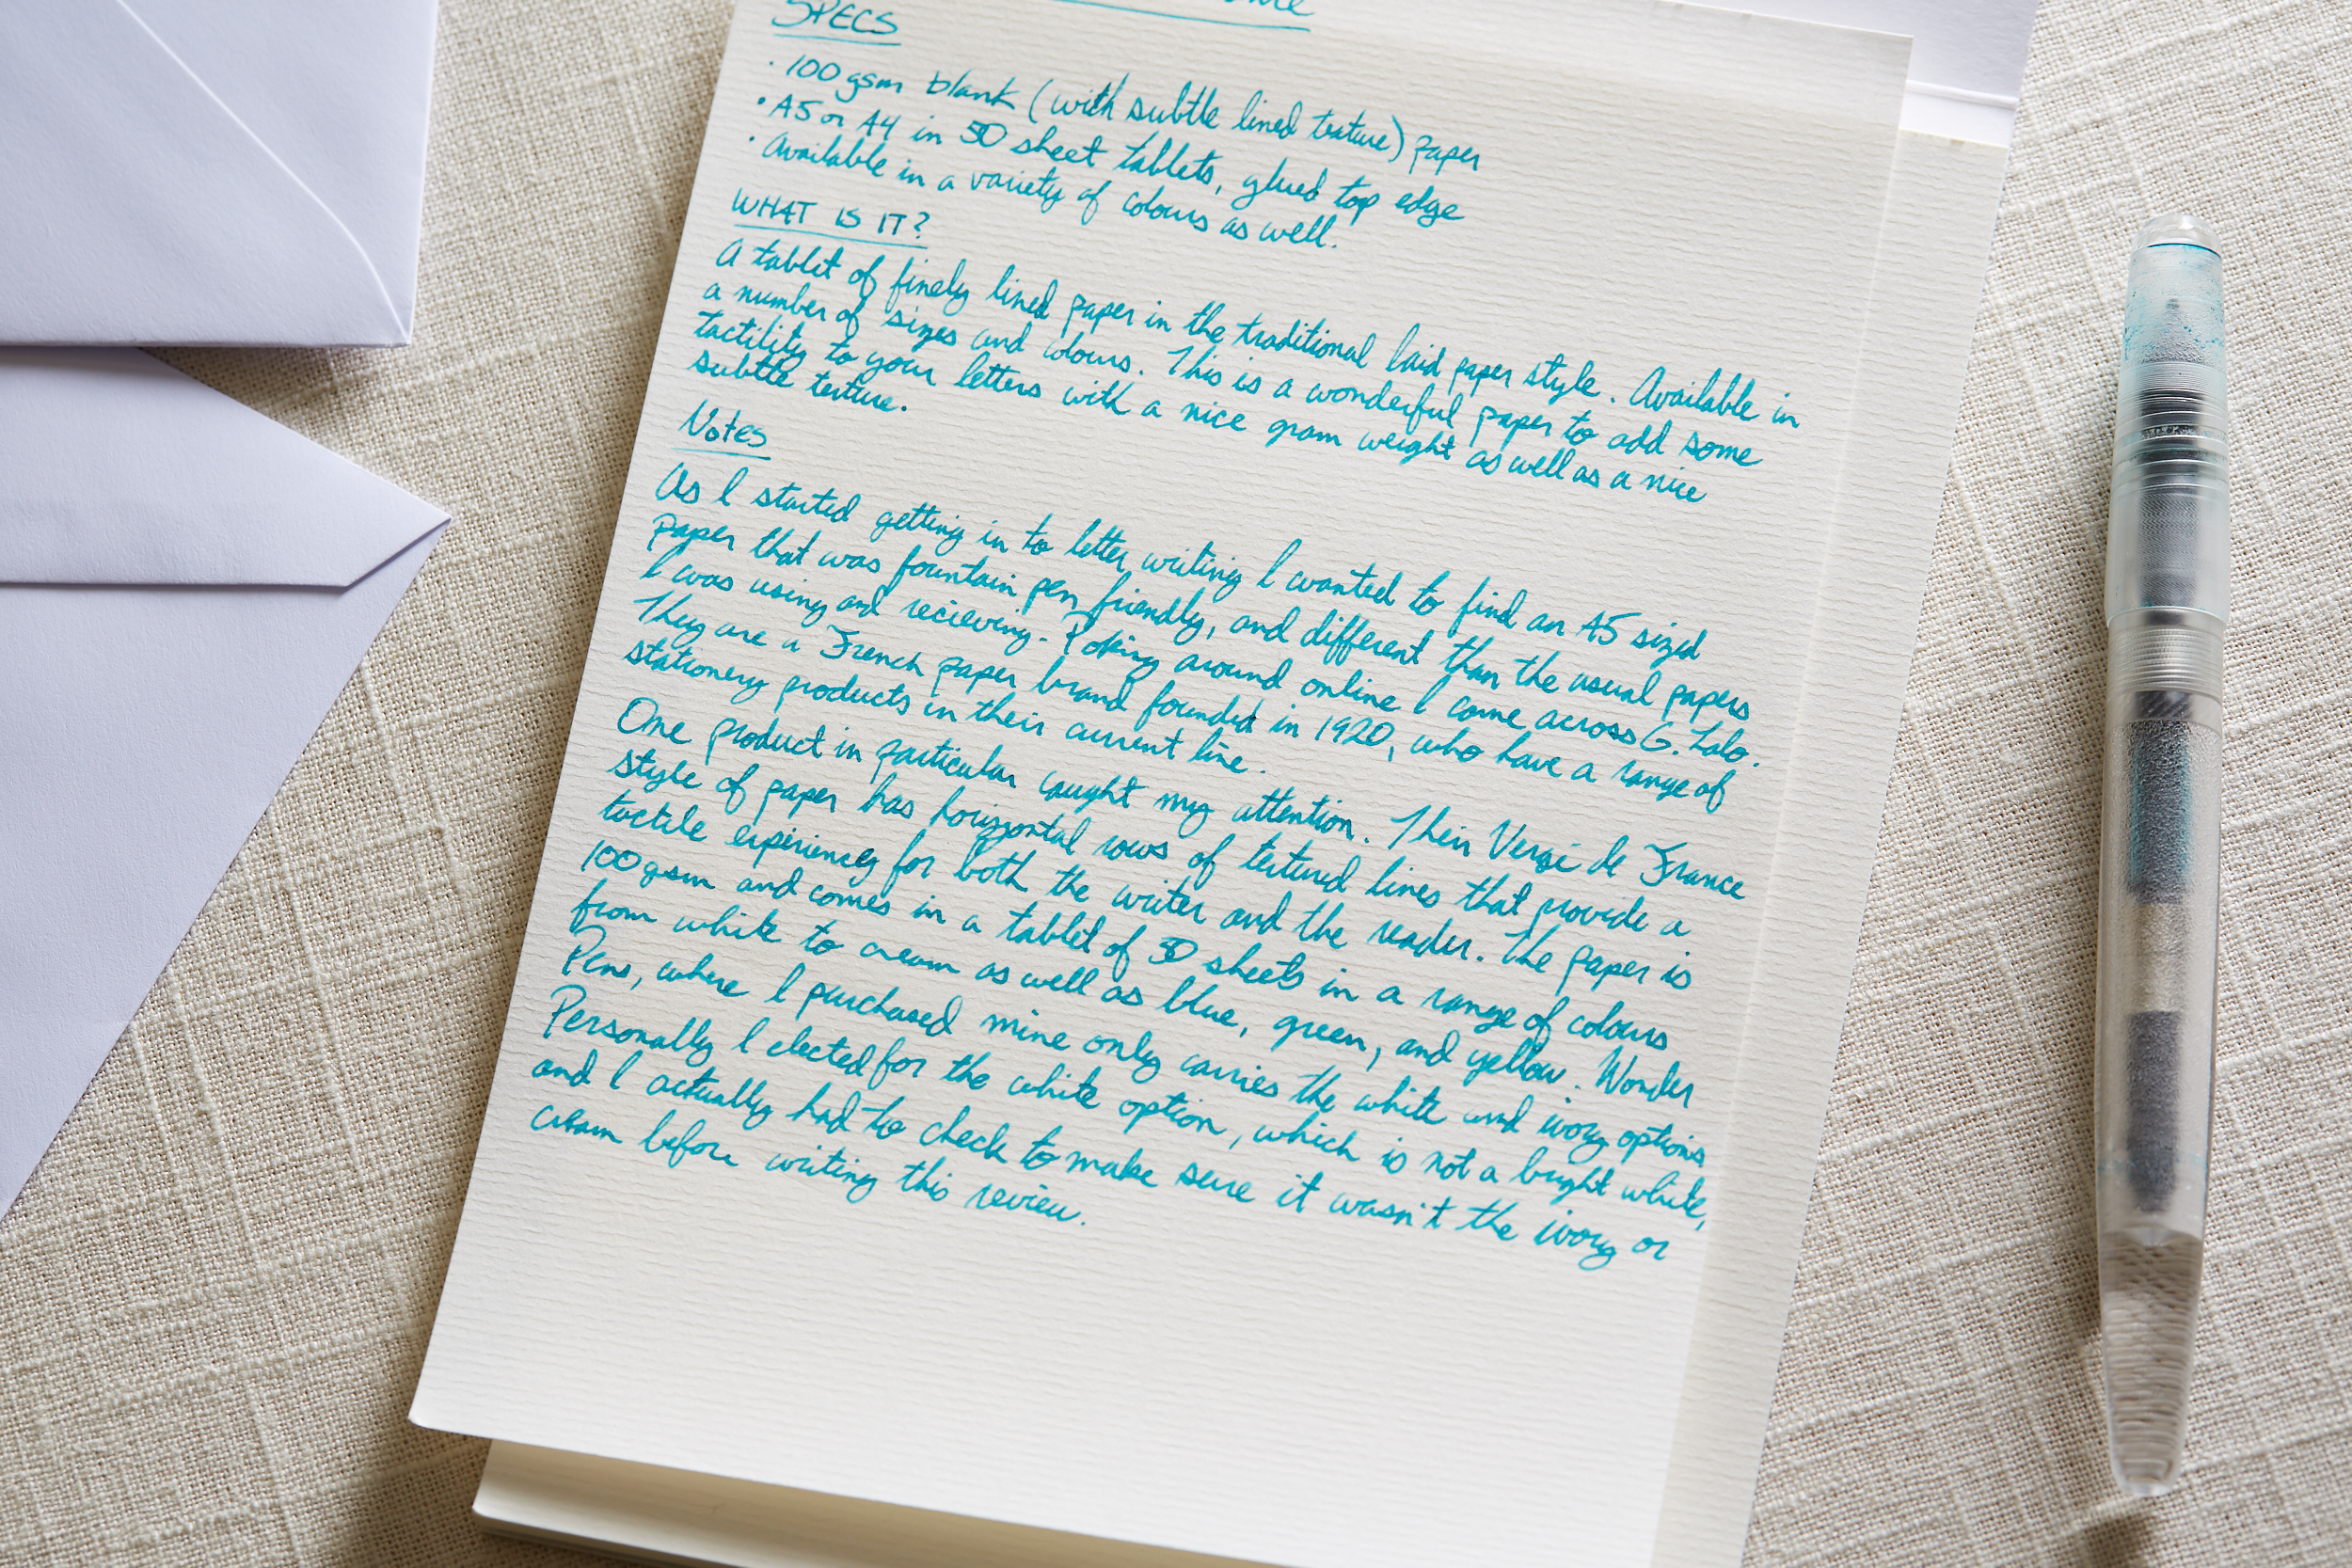 SPECS
· 100 gsm blank (with subtle lined texture) paper
· A5 or A4 in 50 sheet tablets, glued top edge
· Available in a variety of colours as well.
WHAT IS IT?
A tablet of finely lined paper in the traditional laid paper style. Available in
a number of sizes and colours. This is a wonderful paper to add some
tactility to your letters with a nice gram weight as well as a nice
subtle texture.
Notes
As I started getting in to letter writing I wanted to find an A5 sized
paper that was fountain pen friendly, and different than the usual papers
I was using and recieving. Poking around online I came across G. Lalo.
They are a French paper brand founded in 1920, who have a range of
stationery products in their current line.
One product in particular caught my attention. Their Vergé de France
style of paper has horizontal rows of textured lines that provide a
tactile experience for both the writer and the reader. The paper is
100gsm and comes in a tablet of 50 sheets in a range of colours
from white to cream as well as blue, green, and yellow. Wonder
Pens, where I purchased mine only carries the white and ivory options.
Personally I elected for the white option, which is not a bright white,
and I actually had to check to make sure it wasn't the ivory or
cream before writing this review.